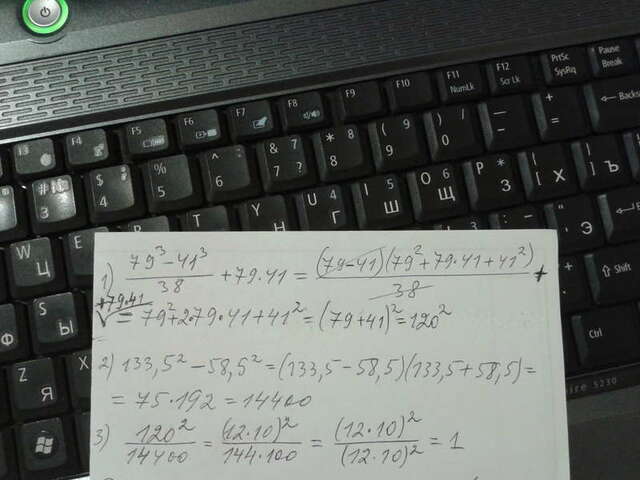 F3 F4 F5 F6 F7 F8 F9 F10 F11 NumLk F12 Scr Lk PrtSc SysRq Pause Break
# № 3 3 $ ; 4 4 % 5 5 ^ : 6 6 & 7 7 ? * 8 8 ( 9 9 ) / 0 0 _ - + = Backs
W Ц E R T Y U Г I 5 Ш O 6 Щ P * З { [ Х } ] Ъ
S Ы " ' Э Shift
Z Я X Ctrl
ire 5230
1) 79³ - 41³ / 38 + 79·41 = (79-41)(79²+79·41+41²) / 38 +
+79·41
= 79²+2·79·41+41² = (79+41)² = 120²
2) 133,5² - 58,5² = (133,5 - 58,5)(133,5 + 58,5) =
= 75·192 = 14400
3) 120² / 14400 = (12·10)² / 144·100 = (12·10)² / (12·10)² = 1